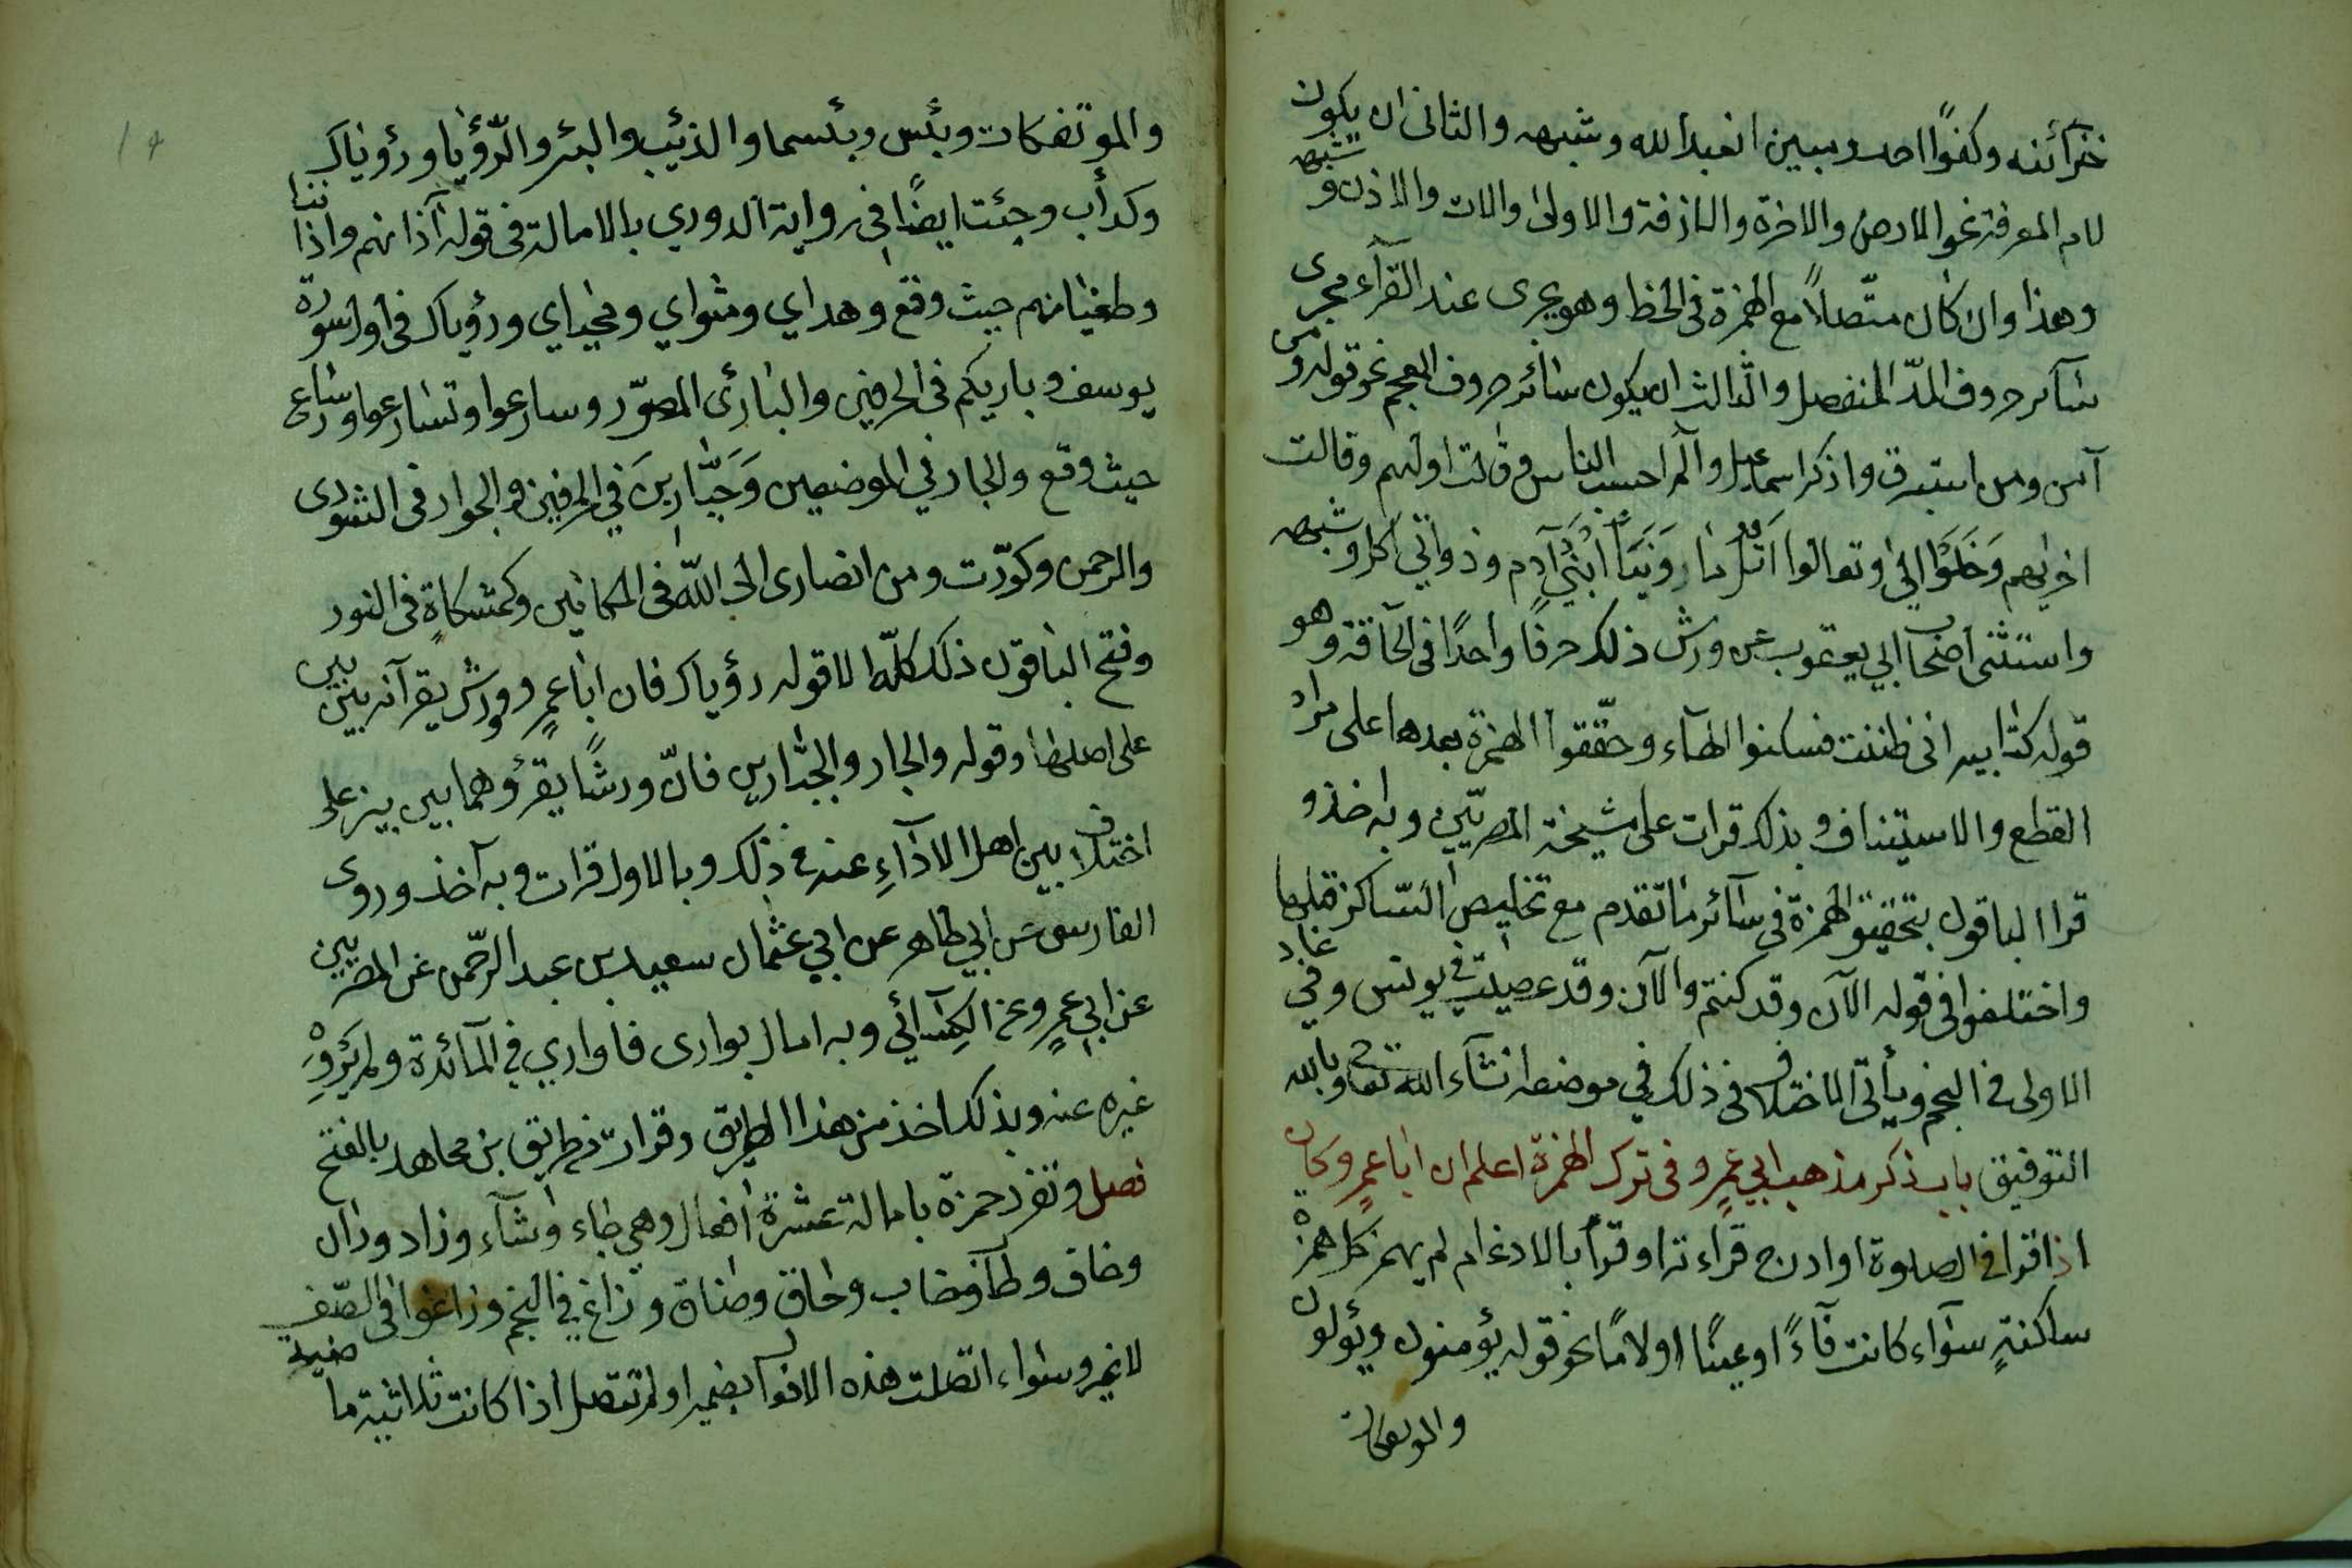 من شيء اذ كانوا وكفوًا احد ومبين ان اعبدوا الله وشبهه والثاني ان يكون
لام المعرفة نحو الارض والاخرة والازفة والاولى والان والاذن وشبهه
وهذا وان كان متّصلاً مع الهمزة في الخط وهو يجرى عند القرآء مجرى
سآئر حروف المدّ المنفصل والثالث ان يكون سائر حروف المعجم نحو قوله من
آمن ومن استبرق واذكر اسماعيل والم احسب الناس وقالت اوليهم وقالت
اخريهم وَخَلَوْا الى وتعالوا اتل نبأ ابْنَيْ آدم وذواتي اكل وشبهه
واستثنى اصحاب ابي يعقوب عن ورش ذلك حرفًا واحدًا في الحآقة وهو
قوله كتابيه اني ظننت فسكنوا الهآء وحقّقوا الهمزة بعدها على مراد
القطع والاستيناف وبذلك قرات على مشيخة المصريّين وبه اخذ و
قرا الباقون بتحقيق الهمزة في سآئر ما تقدم مع تخليص السّاكن قبلها
واختلفوا في قوله الآن وقد كنتم والآن وقد عصيت في يونس وفي عاد
الاولى في النجم ويأتي الاختلاف في ذلك في موضعه انشآء الله تعالى وبالله
التوفيق باب ذكر مذهب ابي عمرٍو في ترك الهمزة اعلم ان اباعمرٍو كان
اذا قرا في الصلوة او ادرج قراءته او قرأ بالادغام لم يهمز كل همزة
ساكنةٍ سوآء كانت فآءً او عينًا او لامًا نحو قوله يؤمنون ويؤلون
والموتفكات
والموتفكات وبئس وبئسما والذئب والبئر والرّؤيا ورؤياك
وكدأب وجئت ايضًا في رواية الدوري بالامالة في قوله آذانهم واذاننا
وطغيانهم حيث وقع وهداي ومثواي ومحياي ورؤياك في اول سورة
يوسف وباريكم في الحرفين والبارئ المصوّر وسارعوا وتسارعوا ونسارع
حيث وقع والجار في الموضعين وَجَبَّارِينَ في الحرفين والجوار في الشورى
والرحمن وكوّرت ومن انصارى الى اللّه في المكانين وكمشكاةٍ في النور
وفتح الباقون ذلك كلّه الا قوله رؤياك فان اباعمرٍو وورش يقرآنه بين بين
على اصلهما وقوله والجار والجبّارين فانّ ورشًا يقرؤهما بين بين على
اختلاف بين اهل الادآءِ عنه في ذلك وبالاول قرات وبه آخذ وروى
الفارسي عن ابي طاهر عن ابي عثمان سعيد بن عبد الرّحمن عن المصريين
عن ابي عمرٍو وعن الكِسآئي وبه امال يوارى فاواري في المآئدة ولم يَرْوِهْ
غيره عنه وبذلك اخذ من هذا الطريق وقرات من طريق بن مجاهد بالفتح
فصل وتفرد حمزة بامالة عشرة افعال وهي جاء وشآء وزاد وران
وخاف وطآب وخاب وحاق وضاق وزاغ في النجم وزاغوا في الصّف
لا غير وسواء اتصلت هذه الافعال بضمير او لم تتصل اذا كانت ثلاثية ماضية